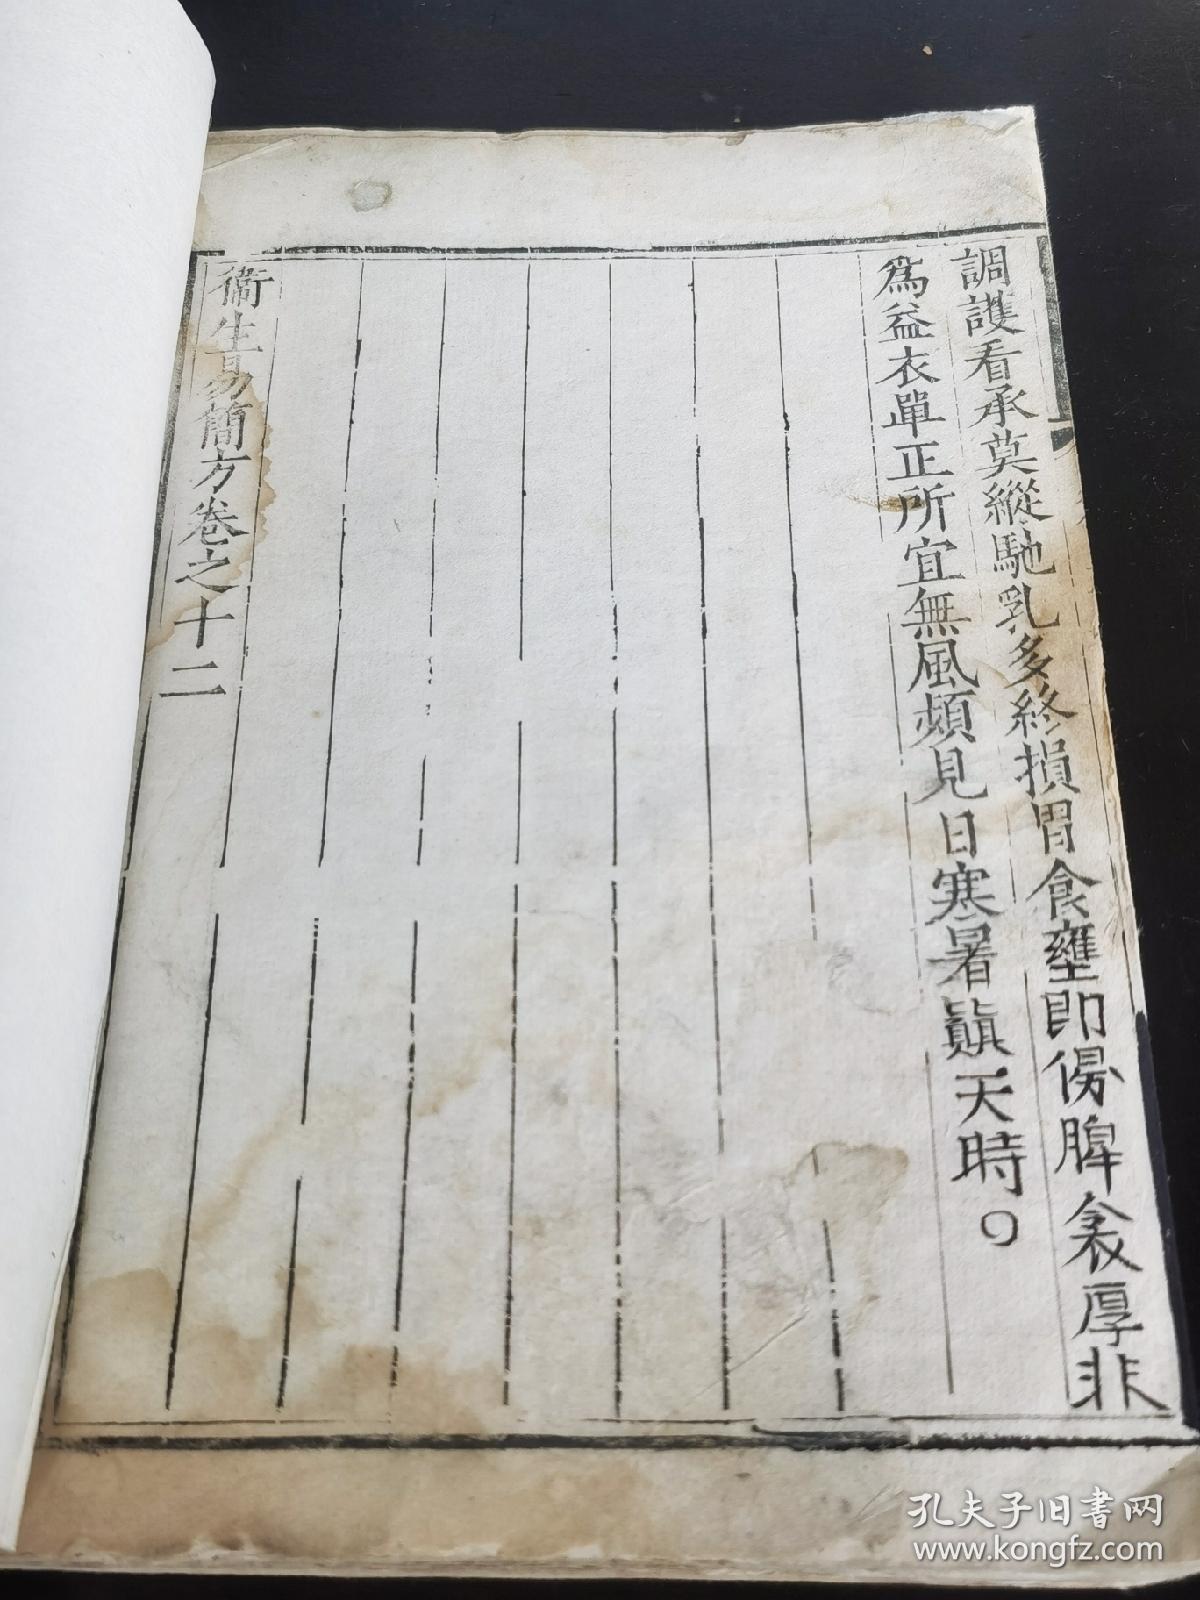 調護看承莫縱馳乳多終損胃食壅即傷脾衾厚非
爲益衣單正所宜無風頻見日寒暑順天時
衛生易簡方卷之十二
孔夫子旧书网
www.kongfz.com